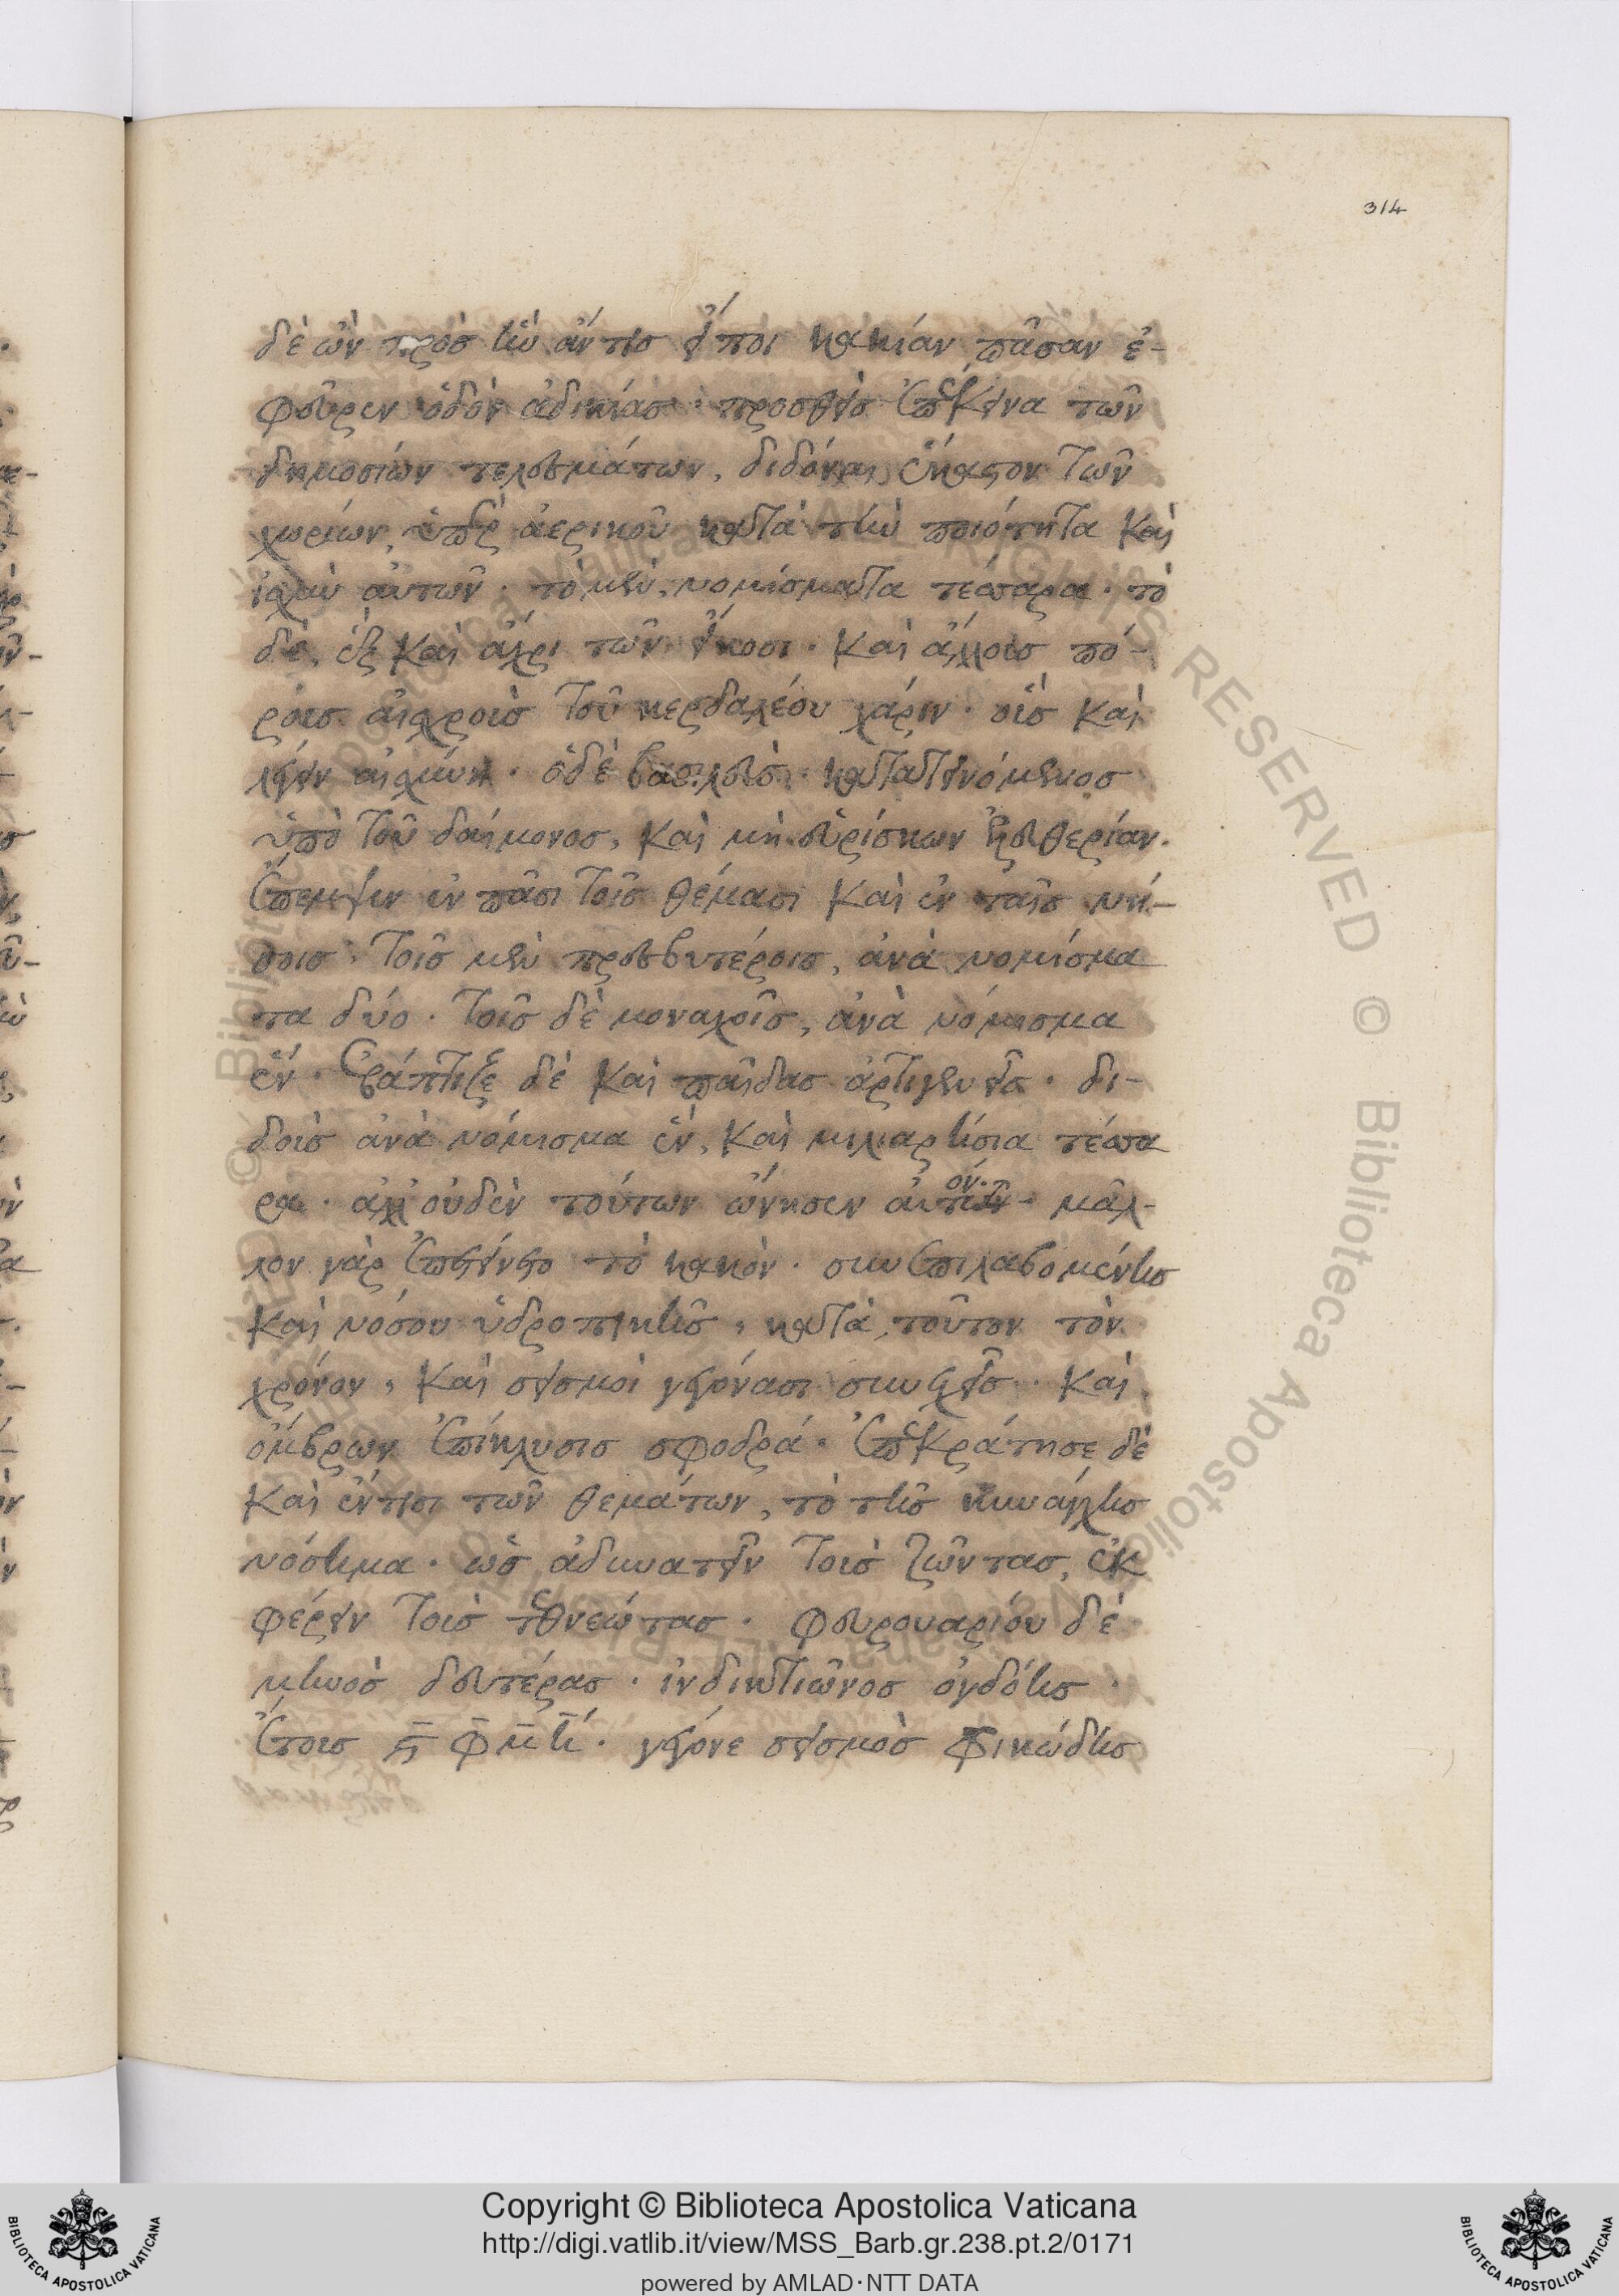 314
δὲ ὢν πρὸς ἣν ἄν τις εἴποι κακίαν πᾶσαν ἐ-
φεῦρεν ὁδὸν ἀδικίας· προσθεὶς ἐπέκεινα τῶν
δημοσίων τελεσμάτων, διδόναι ἕκαστον τῶν
χωρίων, ὑπὲρ ἀερικοῦ κατὰ τὴν ποιότητα καὶ
ἰσχὺν αὐτῶν· τὸ μὲν, νομίσματα τέσσαρα· τὸ
δὲ, ἓξ καὶ ἄχρι τῶν εἴκοσι· καὶ ἄλλοις πό-
ροις αἰσχροῖς τοῦ κερδαλέου χάριν· οἷς καὶ
λέγειν αἰσχύνη· ὁ δὲ βασιλεὺς· κατατεινόμενος
ὑπὸ τοῦ δαίμονος, καὶ μὴ εὑρίσκων ἐλευθερίαν.
ἔπεμψεν ἐν πᾶσι τοῖς θέμασι καὶ ἐν ταῖς νή-
σοις· τοῖς μὲν πρεσβυτέροις, ἀνὰ νομίσμα
τα δύο· τοῖς δὲ μοναχοῖς, ἀνὰ νόμισμα
ἕν· ἐβάπτιζε δὲ καὶ παῖδας ἀρτιγενεῖς· δι-
δοὺς ἀνὰ νόμισμα ἓν, καὶ μιλιαρήσια τέσσα
ρα· ἀλλ' οὐδὲν τούτων ὤνησεν αὐτὸν· μᾶλ-
λον γὰρ ἐπετείνετο τὸ κακὸν· συνεπιλαβομένης
καὶ νόσου ὑδροπικῆς, κατὰ τοῦτον τὸν
χρόνον, καὶ σεισμοὶ γεγόνασι συνεχεῖς· καὶ
ὄμβρων ἐπίκλυσις σφοδρά· ἐπεκράτησε δὲ
καὶ ἔν τισι τῶν θεμάτων, τὸ τῆς κυνάγχης
νόσημα· ὡς ἀδυνατεῖν τοὺς ζῶντας, ἐκ
φέρειν τοὺς τεθνεώτας· φευρουαρίου δὲ
μηνὸς δευτέρας· ἰνδικτιῶνος ὀγδόης·
ἔτους ϛ φ μ η· γέγονε σεισμὸς φρικώδης
Copyright © Biblioteca Apostolica Vaticana
http://digi.vatlib.it/view/MSS_Barb.gr.238.pt.2/0171
powered by AMLAD·NTT DATA